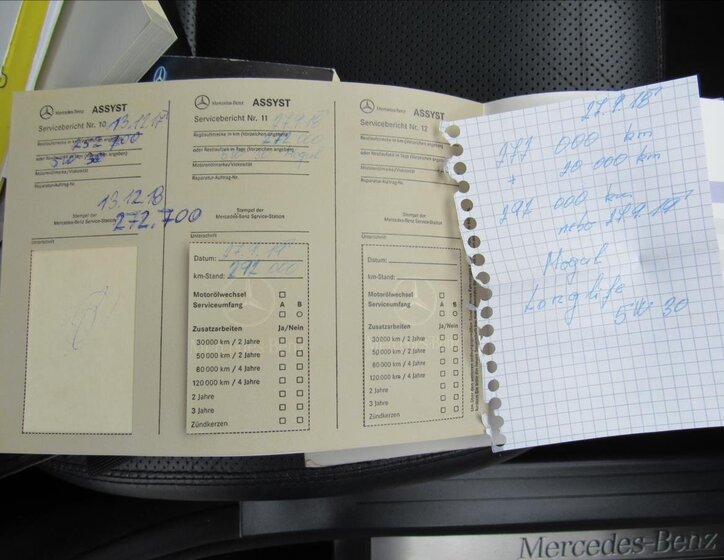 Mercedes-Benz ASSYST
Servicebericht Nr. 10
13.12.17
Restlaufstrecke in km (Vorzeichen angeben)
252 700
oder Restlaufzeit in Tage (Vorzeichen angeben)
5W 30
Motorenölmarke/Viskosität
Reparatur-Auftrag-Nr.
13.12.18
Stempel der
Mercedes-Benz Service-Station
272.700
Unterschrift
Mercedes-Benz ASSYST
Servicebericht Nr. 11
27.9.18
Restlaufstrecke in km (Vorzeichen angeben)
272 000
oder Restlaufzeit in Tage (Vorzeichen angeben)
5W 30 Mogul
Motorenölmarke/Viskosität
Reparatur-Auftrag-Nr.
Stempel der
Mercedes-Benz Service-Station
Unterschrift
Datum:
km-Stand: 292 000
Motorölwechsel
Serviceumfang A B
Zusatzarbeiten Ja/Nein
30 000 km / 2 Jahre
50 000 km / 2 Jahre
80 000 km / 4 Jahre
120 000 km / 4 Jahre
2 Jahre
3 Jahre
Zündkerzen
Mercedes-Benz ASSYST
Servicebericht Nr. 12
Restlaufstrecke in km (Vorzeichen angeben)
oder Restlaufzeit in Tage (Vorzeichen angeben)
Motorenölmarke/Viskosität
Reparatur-Auftrag-Nr.
Stempel der
Mercedes-Benz Service-Station
Unterschrift
Datum:
km-Stand:
Motorölwechsel
Serviceumfang A B
Zusatzarbeiten Ja/Nein
30 000 km / 2 Jahre
50 000 km / 2 Jahre
80 000 km / 4 Jahre
120 000 km / 4 Jahre
2 Jahre
3 Jahre
Zündkerzen
27.9.18
272 000 km
+ 20 000 km
292 000 km
nebo 27.9.19
Mogul
Longlife
5W 30
Mercedes-Benz